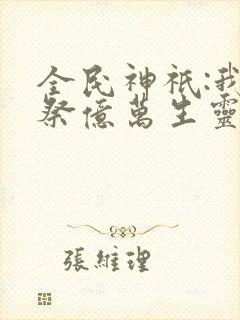 全民神祇:我
祭億萬生靈
張維理